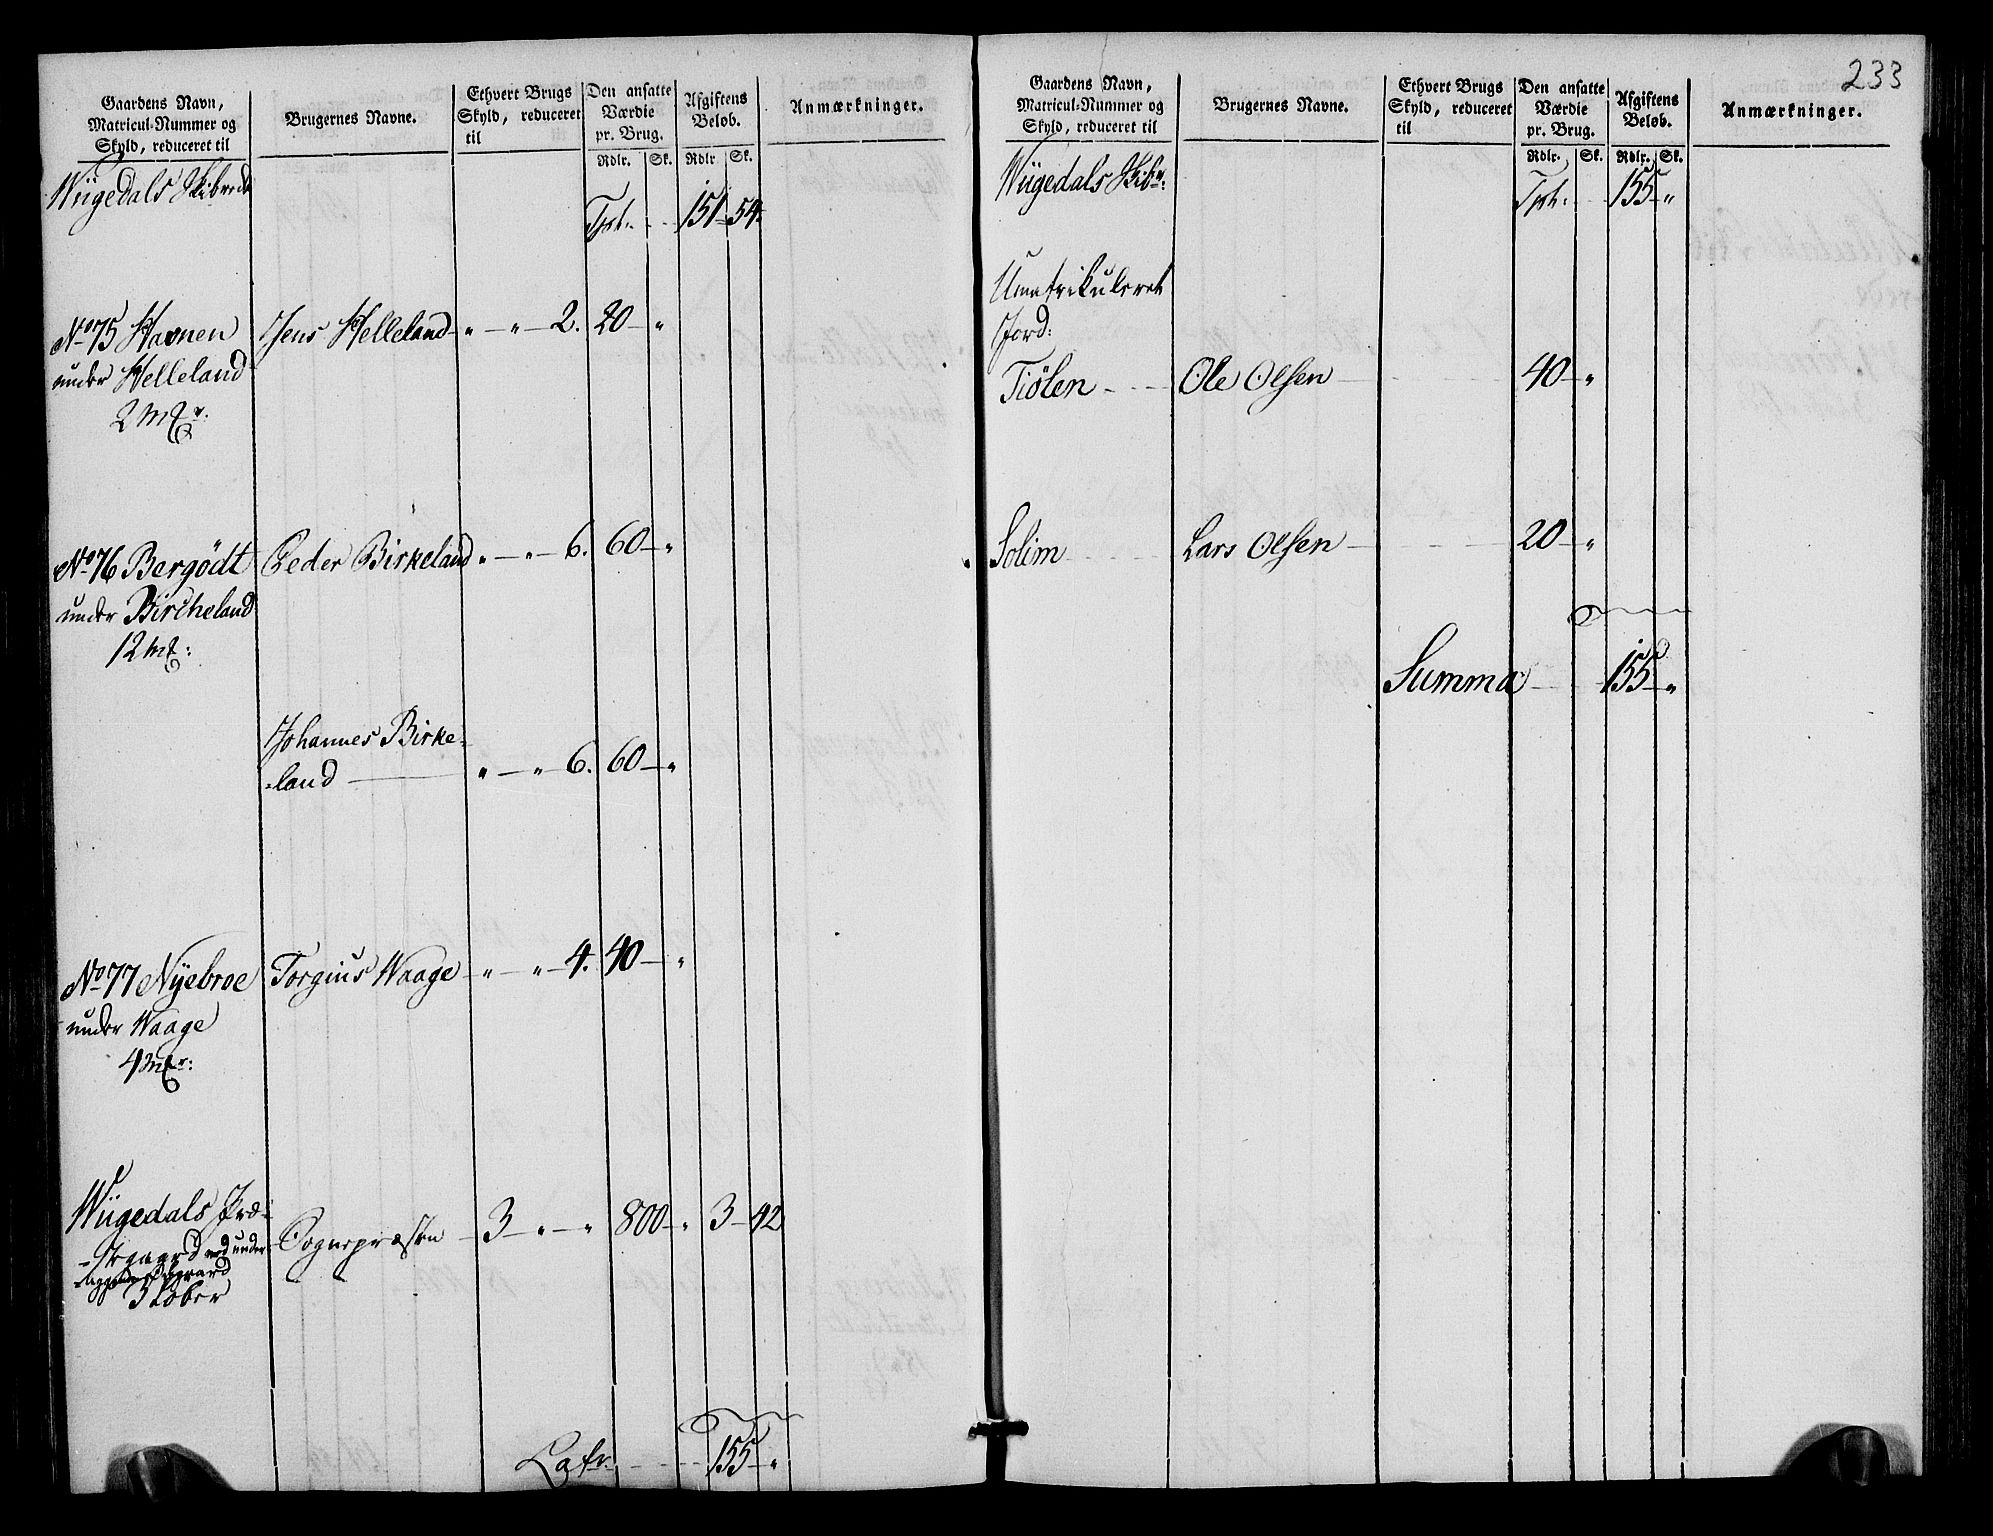 Gaardens Navn,
Matricul-Nummer og
Skyld, reduceret til
Brugernes Navne.
Ethvert Brugs
Skyld, reduceret
til
Den ansatte
Værdie
pr. Brug.
Rdlr. Sk.
Afgiftens
Beløb.
Rdlr Sk.
Anmærkninger.
Wiigedals Skibrede
Tpt. 151 54.
No 75 Havnen Jens Helleland " " 2. 20 "
under Helleland
2 mkr.
No 76 Bergödt Peder Birkeland " " 6. 60 "
under Bircheland
12 mk:
Johannes Birke-
-land " " 6. 60 "
No 77 Nÿebroe Torgius Waage " " 4. 40 "
under Waage
4 mkr:
Wiigedals Præ-
-stegaard med under-
-liggende Ødegaard
3 Løber
Sognepræsten 3 " " 800 " 3 42
Latr. 155 "
233
Gaardens Navn,
Matricul-Nummer og
Skyld, reduceret til
Brugernes Navne.
Ethvert Brugs
Skyld, reduceret
til
Den ansatte
Værdie
pr. Brug.
Rdlr. Sk.
Afgiftens
Beløb.
Rdlr. Sk.
Anmærkninger.
Wiigedals Skibr:
Tpt: 155 "
Umatrikuleret
Jord:
Tiölen Ole Olsen 40 "
Solim Lars Olsen 20 "
Summa 155 "